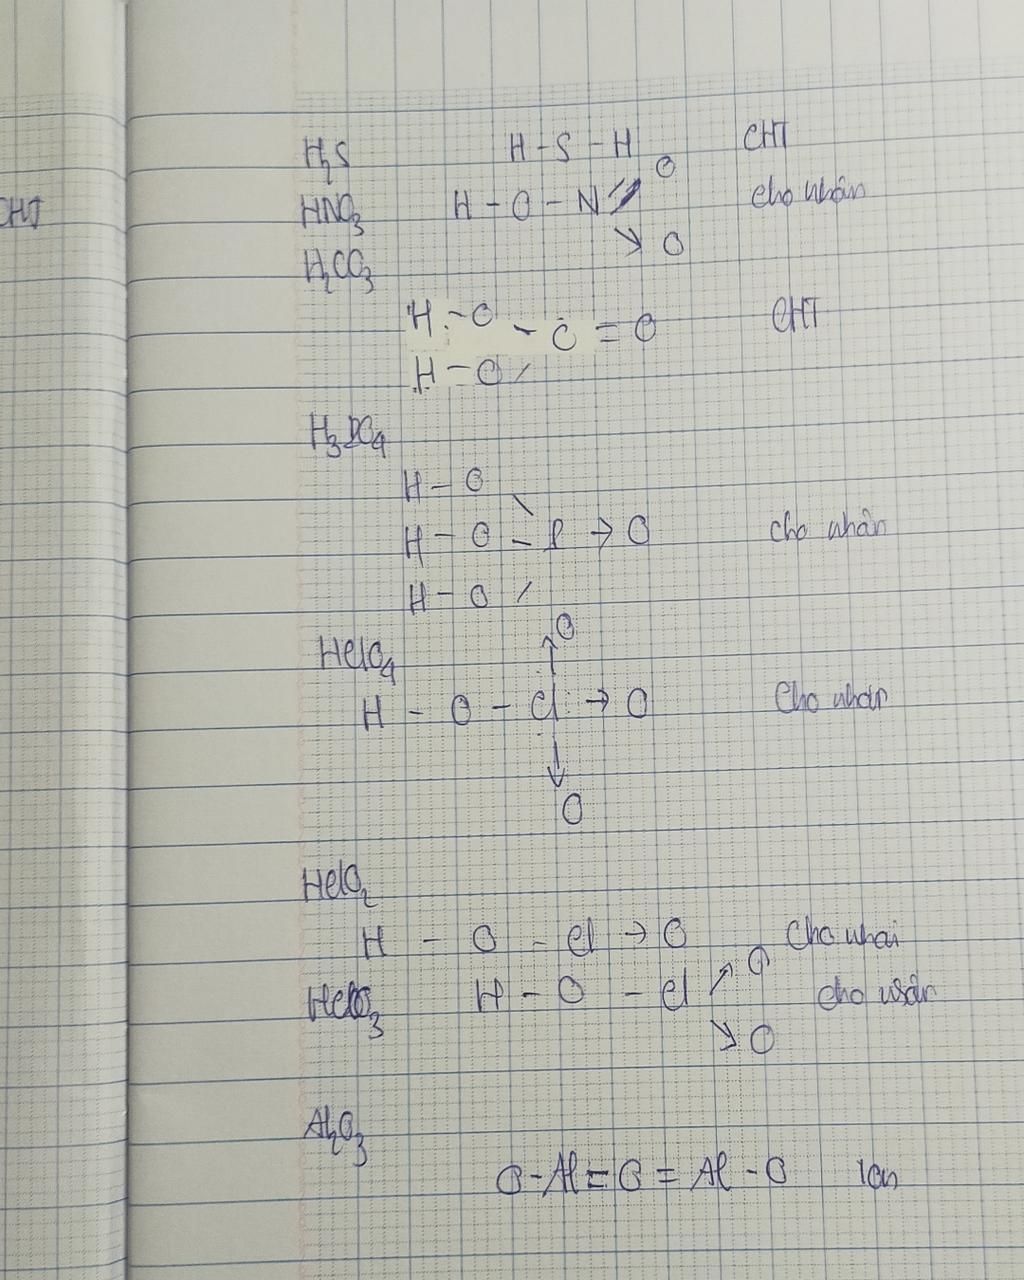 H₂S H - S - H CHT
CHT
HNO₃ H - O - N O cho nhân
↘ O
H₂CO₃
H - O - C = O CHT
H - O /
H₃PO₄
H - O \
H - O - P → O cho nhân
H - O /
↑ O
HClO₄
H - O - Cl → O Cho nhân
↓
O
HClO₂
H - O - Cl → O Cho nhân
HClO₃ H - O - Cl ↗ O cho nhân
↘ O
Al₂O₃
O - Al = O = Al - O Ion